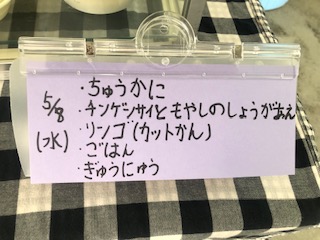 5/8
(水)
・ちゅうかに
・チンゲンサイともやしのしょうがあえ
・リンゴ(カットかん)
・ごはん
・ぎゅうにゅう